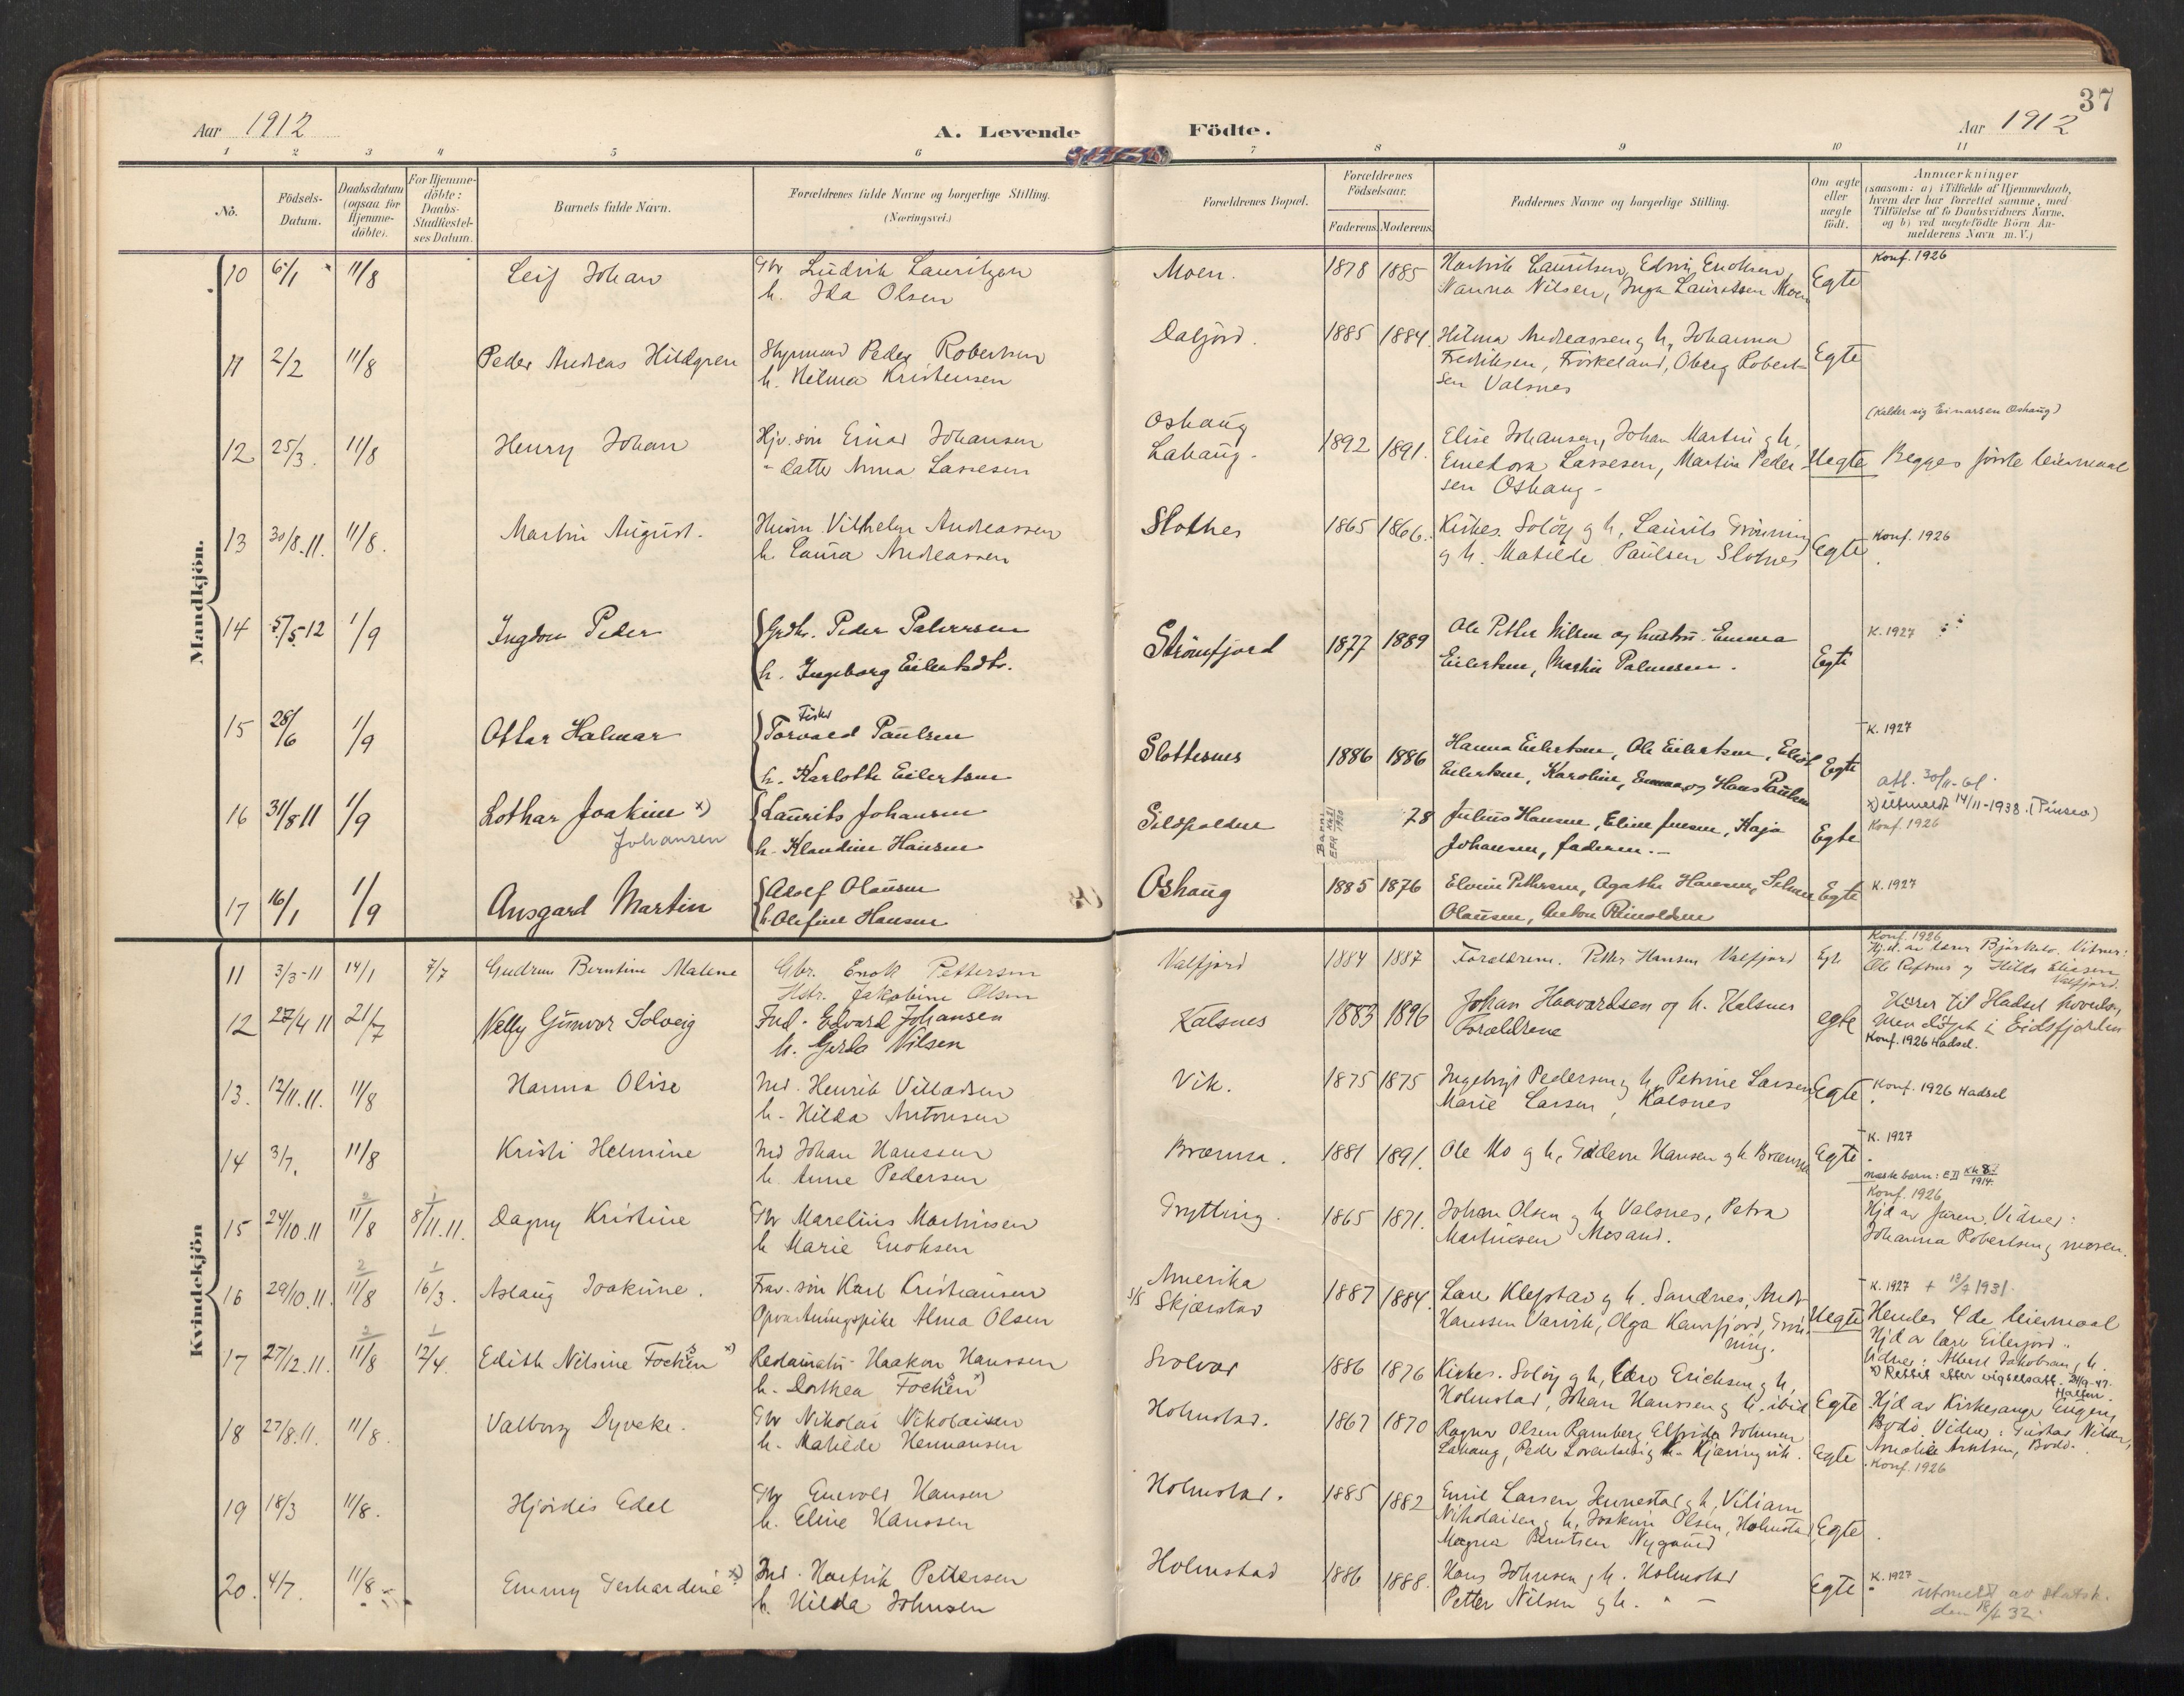 37
Aar 1912
A. Levende Födte.
Aar 1912
1 2 3 4 5 6 7 8 9 10 11
No.
Födsels-Datum.
Daabsdatum (ogsaa for Hjemme-döbte).
For Hjemme-döbte: Daabs-Stadfæstel-ses Datum.
Barnets fulde Navn.
Forældrenes fulde Navne og borgerlige Stilling.
(Næringsvei.)
Forældrenes Bopæl.
Forældrenes Födselsaar.
Faderens. Moderens.
Faddernes Navne og borgerlige Stilling.
Om ægte eller uægte födt.
Anmærkninger
(saasom: a) i Tilfælde af Hjemmedaab,
hvem der har forrettet samme, med
Tilföielse af to Daabsvidners Navne,
og b) ved uægtefödte Börn An-
melderens Navn m. V.)
Mandkjön.
10 6/1 11/8 Leif Johan Gbr Ludvik Lauritzen Moen. 1878 1885 Hartvik Lauritsen, Edvin Enoksen, Egte Konf. 1926
h. Ida Olsen Nanna Nilsen, Inga Lauritsen Moen
11 2/2 11/8 Peder Andreas Hildgren Styrmand Peder Robertsen Daljord. 1885 1884. Hilma Andreassen g h, Johanna Egte
h. Hilma Kristensen Fredriksen, Frøskeland, Oberg Robert-
sen Valsnes
12 25/3. 11/8 Henry Johan Hjv. søn Einar Johansen Oshaug 1892 1891. Elise Johansen, Johan Martin g h. Uegte (Kalder sig Einarsen Oshaug)
- datter Anna Lassesen Lahaug - Lassesen, Martin Peder- Begges første leiermaal
sen Oshaug -
13 30/8.11. 11/8. Martin August. Husm. Vilhelm Andreassen Slotnes 1865 1866. Kirkes. Soløy g h, Laurits Grønning Egte Konf. 1926
h. Laura Andreassen g h. Matilde Paulsen Slotnes
14 5/5-12 1/9 Ingdon Peder Grdbr. Peder Palmesen Strömfjord 1877 1889 Ole Petter Nilsen og hustru Emma Egte K. 1927
h. Ingeborg Eilertsdtr. Eilertsen, Martin Palmesen.
15 28/6 1/9 Ottar Halmar Fisker Torvald Paulsen Slottesnes 1886 1886 Hanna Eilertsen, Ole Eilertsen, Eliot Egte K. 1927
h. Karlotte Eilertsen Eilertsen, Karoline, Emma og Hans Paulsen
16 31/8 11 1/9 Lothar Joakim x) Laurits Johansen 78 Julius Hansen, Eline Jensen, Kaja Egte att. 30/11-61.
Johansen h. Klaudine Hansen Johansen, faderen. - x) utmeldt 14/11-1938. (Pinsev.)
Konf. 1926
17 16/1 1/9 Ansgard Martin Adolf Olausen Oshaug 1885 1876 Elvine Pettersen, Agathe Hansen, Selmer Egte K. 1927
h. Olefine Hansen Olausen, Anton Reinoldsen
Kvindekjön
11 3/3-11 14/1 7/7 Gudrun Berntine Malene Gbr. Enok Pettersen Valfjord 1884 1887 Forældrene. Petter Hansen Valfjord Egte Konf. 1926
Hstr. Jakobine Olsen Hj.d. av lærer Bjørkelo. Vitner:
Ole Refsnes og Hilda Eliasen Valfjord.
12 27/4 11 21/7 Nelly Gunvor Solveig Ind. Edvard Johansen Kalsnes 1883 1896 Johan Haavardsen og h. Kalsnes egte Hører til Hadsel hovedsn
h. Gerda Nilsen Forældrene men døpt i Eidsfjorden
Konf. 1926 Hadsel.
13. 12/11.11. 11/8 Hanna Olise Ind. Henrik Villadsen Vik. 1875 1875 Ingebrigt Pedersen g h, Petrine Larsen Egte Konf. 1926 Hadsel
h. Hilda Antonsen Marie Larsen, Kalsnes
14 3/7. 11/8 Kristi Helmine Ind Johan Hanssen Brænna. 1881 1891. Ole Mo g h, Hansen g h Brænna Egte K. 1927
h. Anne Pedersen
15 24/10.11 11/8 8/11.11. Dagny Kristine Gbr Marelius Martinsen Grytting. 1865 1871. Johan Olsen g h Valsnes, Petra Konf. 1926
h Marie Enoksen Martinsen Mosand. Hjd av faren. Vidner:
Johanna Robertsen g moren.
16 29/10.11. 11/8 16/3. Aslaug Joakine. Frav. søn Karl Kristiansen Amerika 1887 1884. Lars Klepstad g h. Sandnes, Uegte K. 1927 + 13/7 1931.
Opvartningspike Alma Olsen S/S Skjærstad Hanssen Varvik, Olga Grøn- Hendes 4de leiermaal
ning.
17 27/12.11. 11/8 12/4. Edith Nilsine Focksen x) Restauratør Haakon Hanssen Svolvær 1886 1876 Kirkes. Soløy g h, Erichsen g h, Egte Hjd av lærer Eilerfjord.
h. Dorthea Focksen x) Holmstad, Johan Hanssen g h. ibid Vidner: Albert Jakobsen, h.
x) Rettet efter vigselsatt. 24/9-47.
18 27/8.11. 11/8. Valborg Dyveke. Gbr Nikolai Nikolaisen Holmstad. 1867 1870 Ragna Olsen Ramberg, Elfrida Johnsen Egte Hjd av Kirkesanger Eugen,
h. Matilde Hermansen Lahaug, Peder g h. Kjæringvik. Bodø. Vidner: Gustav Nilsen,
Amalie Arntsen, Bodø.
Konf. 1926
19 18/3 11/8. Hjørdis Edel Gbr Enevold Hansen Holmstad. 1885 1882 Emil Larsen Jennestad g h, Viliam Egte
h. Eline Hanssen Nikolaisen g h, Joakim Olsen, Holmstad,
Magna Berntsen Nygaard
20. 4/7. 11/8 Emmy Gerhardine x) Ind. Hartvik Pettersen Holmstad 1886 1888. Hans Johnsen g h. Holmstad Egte K. 1927
h. Hilda Johnsen Petter Nilsen g h. " - utmeldt av statsk.
den 18/4 32.